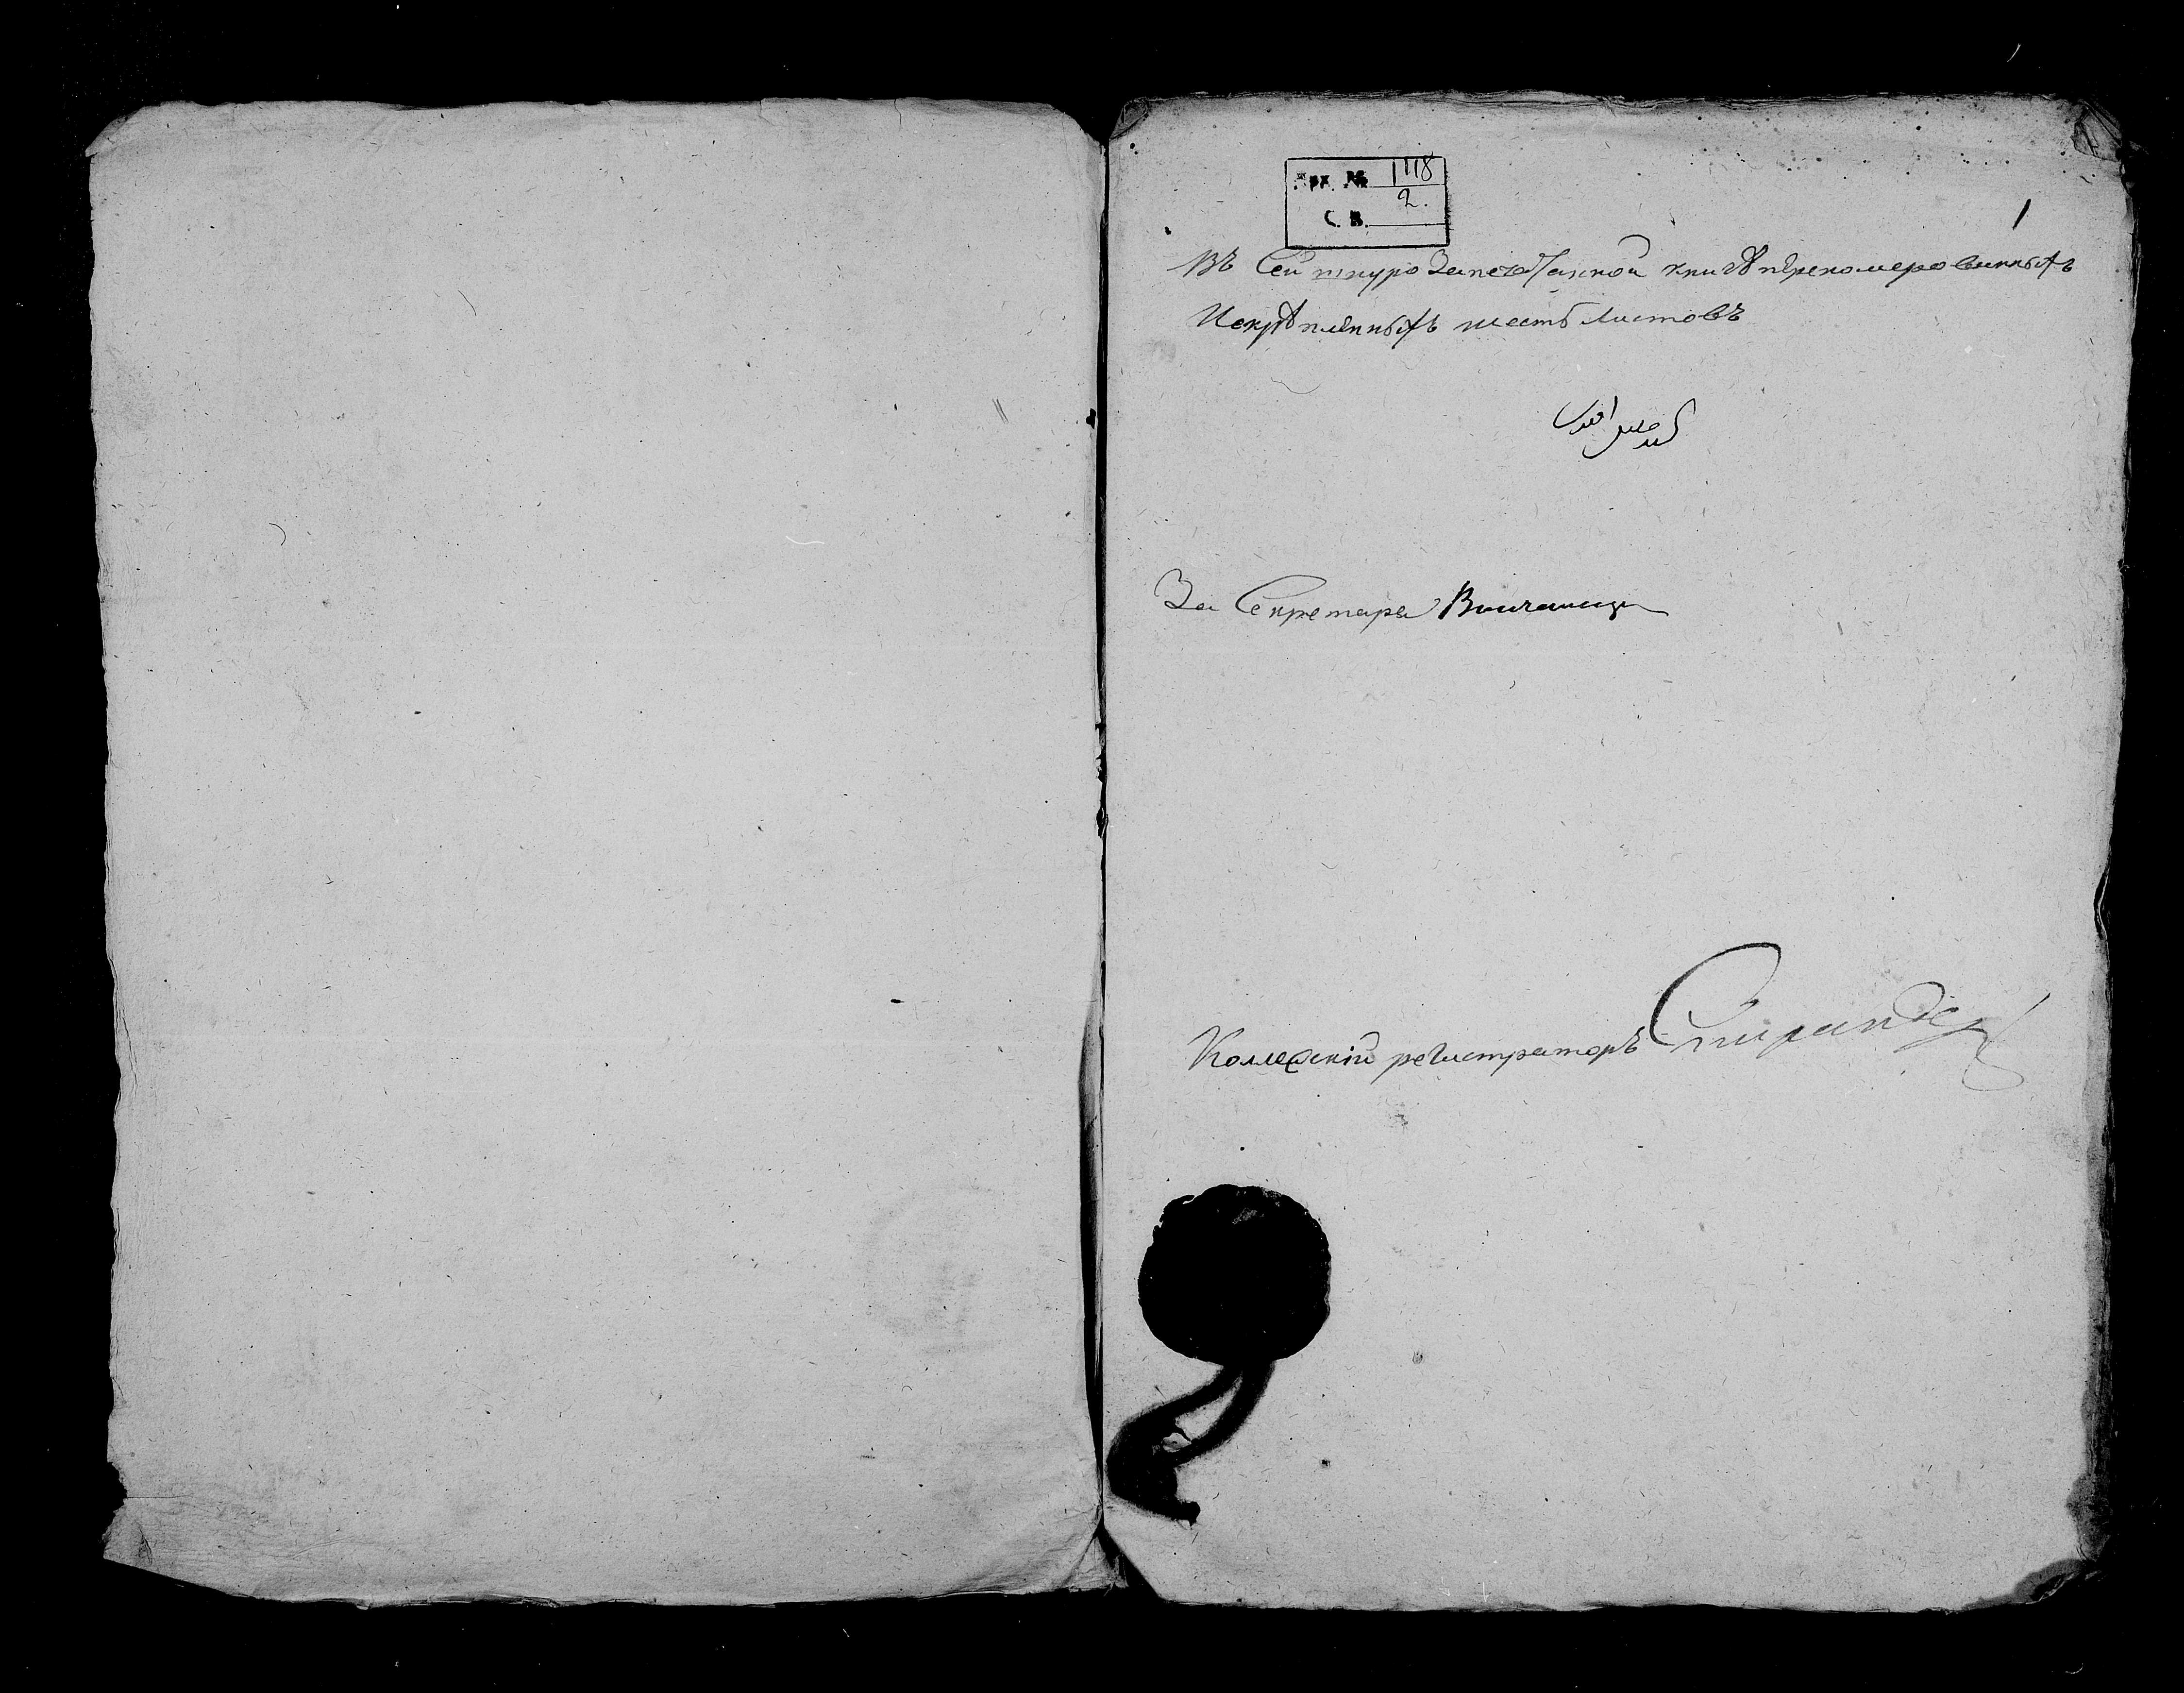 Арх. № 1118
2.
С. В.
1
Въ Сей шнурозапечатанной книгѣ пѣреномерованныхъ
Искрѣпленныхъ шесть листовъ
За Секретара
Колежскій регистраторъ